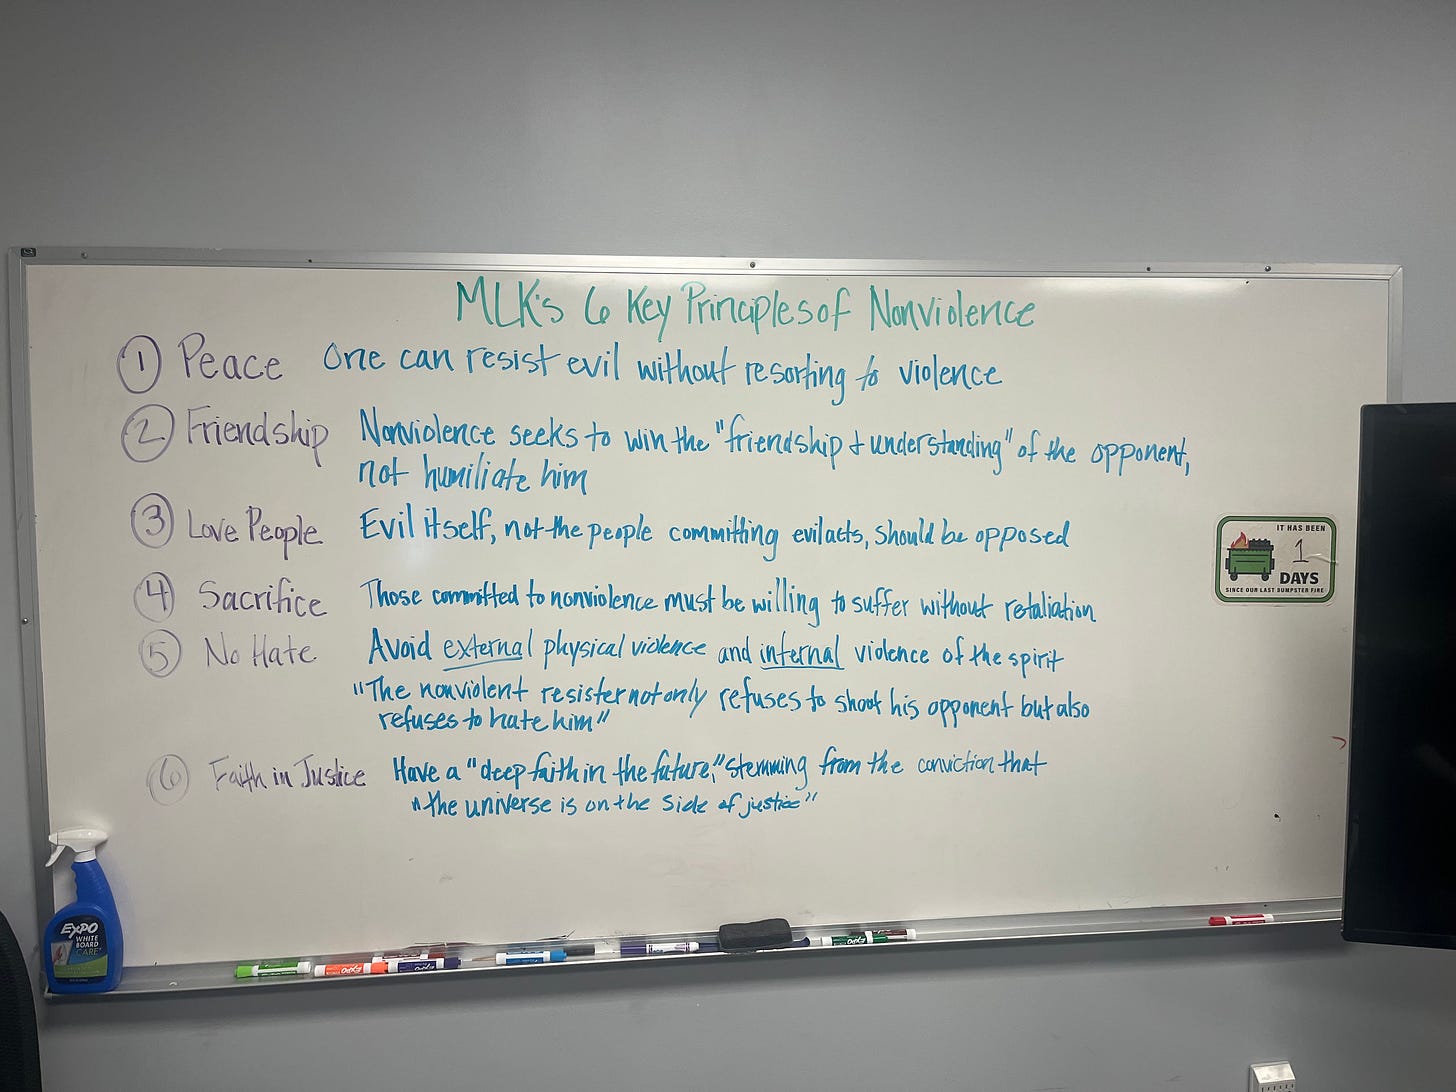 MLK's 6 Key Principles of Nonviolence
1 Peace One can resist evil without resorting to violence
2 Friendship Nonviolence seeks to win the "friendship + understanding" of the opponent,
not humiliate him
3 Love People Evil itself, not the people committing evil acts, should be opposed
4 Sacrifice Those committed to nonviolence must be willing to suffer without retaliation
5 No Hate Avoid external physical violence and internal violence of the spirit
"The nonviolent resister not only refuses to shoot his opponent but also
refuses to hate him"
6 Faith in Justice Have a "deep faith in the future," stemming from the conviction that
"the universe is on the side of justice"
IT HAS BEEN
1
DAYS
SINCE OUR LAST DUMPSTER FIRE
EXPO
WHITE
BOARD
CARE
EXPO
EXPO
EXPO